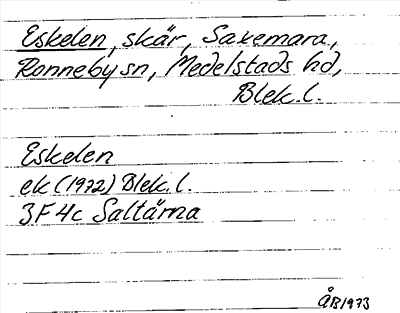 Eskelen, skär, Saxemara,
Ronneby sn, Medelstads hd,
Blek. l.
Eskelen
ek (1972) Blek. l.
3F 4c Saltärna
ÅB 1973